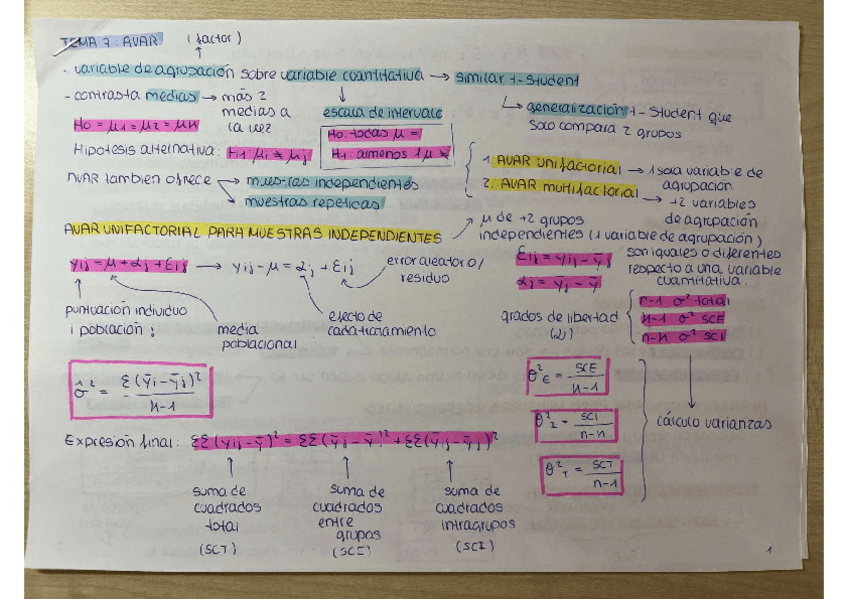 TEMA 7: AVAR (factor)
- variable de agrupación sobre variable cuantitativa → similar t-Student
- contrasta medias → más 2 medias a la vez
escala de intervalo
↳ generalización t-Student que solo compara 2 grupos
H0 = μ1 = μ2 = μk
H0: todas μ =
H1: al menos 1 μ ≠
Hipotesis alternativa: H1 μi ≠ μj
1 AVAR UNIFACTORIAL → 1 sola variable de agrupacion
2. AVAR MULTIFACTORIAL → +2 variables de agrupación
AVAR tambien ofrece → muestras independientes
→ muestras repeticas
AVAR UNIFACTORIAL PARA MUESTRAS INDEPENDIENTES
μ de +2 grupos independientes (1 variable de agrupación) son iguales o diferentes respecto a una variable cuantitativa.
yij = μ + αj + εij → yij - μ = αj + εij
error aleatorio/ residuo
εij = yij - ȳj
αj = ȳj - ȳ
puntuación individuo i población j
media poblacional
efecto de cada tratamiento
grados de libertad
n-1 σ² total
k-1 σ² SCE
n-k σ² SCI
σ̂² = Σ(ȳi - ȳj)² / k-1
σ²E = SCE / k-1
σ²I = SCI / n-k
σ²T = SCT / n-1
cálculo varianzas
Expresión final: ΣΣ(yij - ȳ)² = ΣΣ(ȳj - ȳ)² + ΣΣ(yij - ȳj)²
suma de cuadrados total (SCT)
suma de cuadrados entre grupos (SCE)
suma de cuadrados intragrupos (SCI)
1